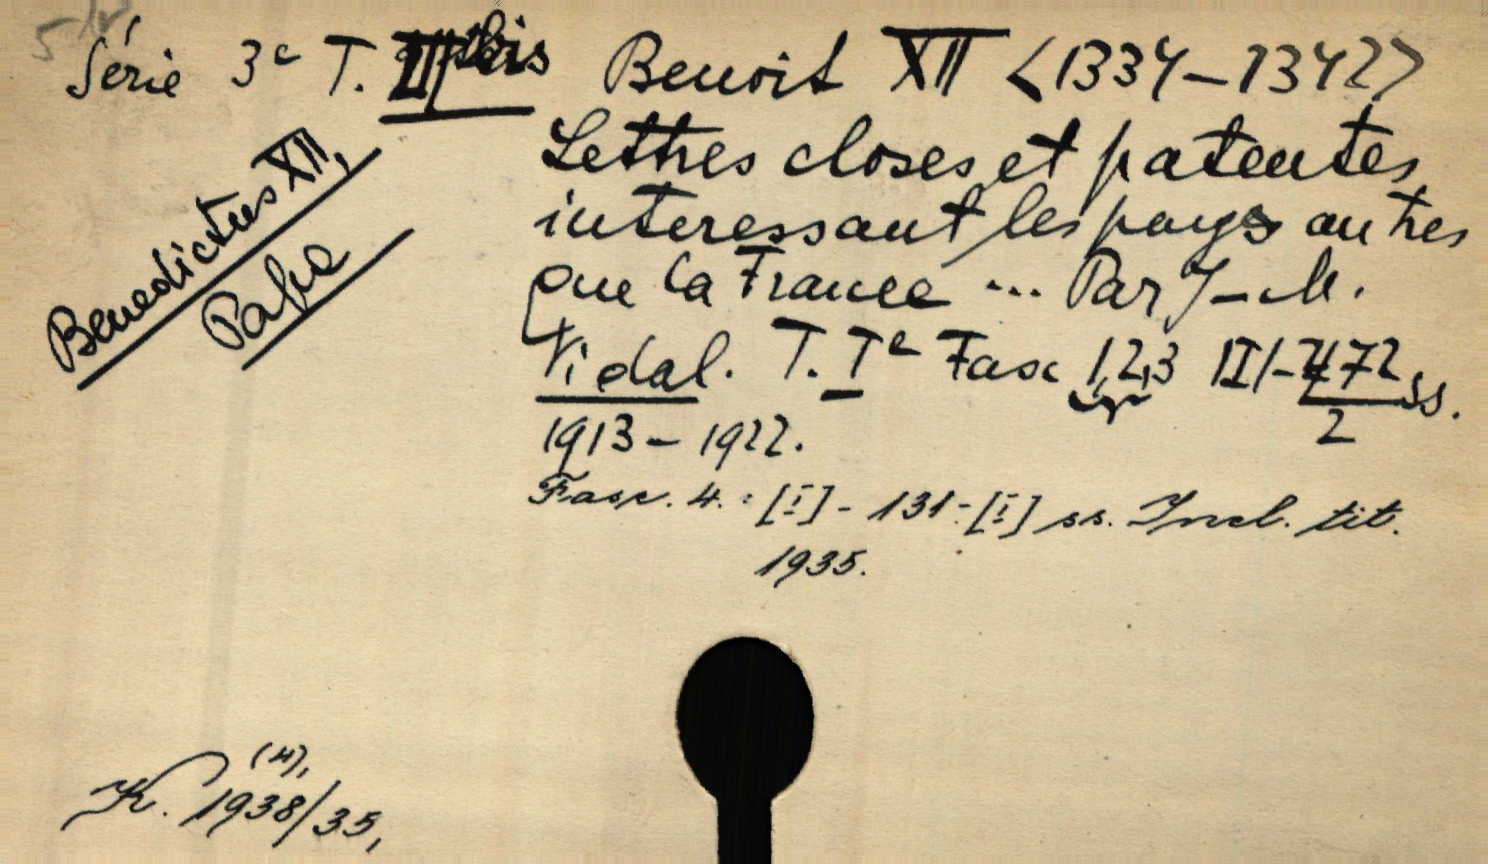 Série 3e T. II bis Benoit XII <1334-1342>
Lettres closes et patentes
interessant les pays autres
que la France ... Par J-M.
Vidal. T. Ie Fasc 1,2,3 III-472 ss.
2
1913-1922.
Fasc. 4. : [I] - 131-[I] ss. Incl. tit.
1935.
Benedictus XII,
Papa
K. 1938/35,
(4),